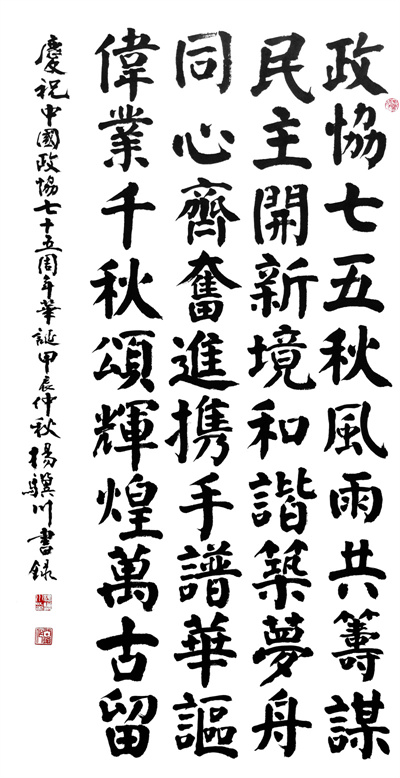 政協七五秋風雨共籌謀
民主開新境和諧築夢舟
同心齊奮進携手譜華謳
偉業千秋頌輝煌萬古留
慶祝中國政協七十五周年華誕甲辰仲秋楊驥川書錄